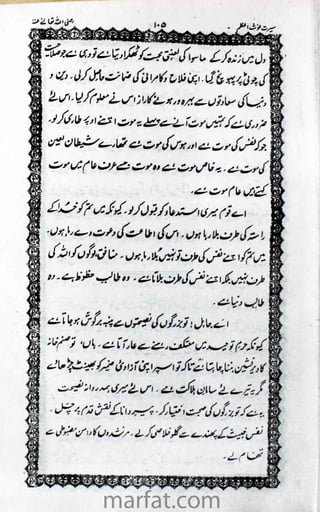 سیرت غوث اعظم
۱۰۵
رضی اللہ تعالے عنہ
دل میں زندہ کر کے ماسوا کی لعنتی محبت کو ٹھکرا دیتا ہے تو وہی ہے جو صلاحیت
کی چوٹی پر پہونچ گیا۔ اپنی فلاح و کامرانی کی ضمانت حاصل کر لی۔ دین و
دنیا کی سعادتوں سے بہرہ ور ہونے کا راز اس نے معلوم کر لیا۔ اس لئے
ضروری ہے کہ تمہیں موت آنے سے پہلے یہ موت اپنے اوپر طاری کر لو۔
جو کہ نفس کی موت ہے اور ہوس کی موت ہے تمہارے شیطان لعین
کی موت ہے۔ یہ خاص موت ہے وہ موت جسے عرف عام میں موت
کہتے ہیں عام موت ہے۔
اے قوم میری استدعا کو قبول کر لو۔ کیونکہ میں تم کو خدا کے
راستہ کی طرف بلا رہا ہوں۔ اس کی اطاعت کی دعوت دے رہا ہوں۔
میں تم کو اپنے نفس کی طرف تو نہیں بلا رہا ہوں۔ منافق لوگوں کو اللہ کی
طرف نہیں بلکہ اپنے نفس کی طرف بلاتا ہے۔ وہ طالب حظوظ ہے۔ وہ
طالب دنیا ہے۔
اے جاہل! تو بزرگوں کی نصیحتوں سے پنبہ بر گوش ہو جاتا ہے
کیونکہ حرم توحید میں معتکف رہنے سے عار آتا ہے۔ ہاں، تو صنم خانہ
کا دیر نشین بننا چاہتا ہے تاکہ تو اسپر اپنی آزادئ ضمیر کو بھینٹ چڑھائے
مگر یہ تیرے لئے سامان ہلاکت ہے۔ اس لئے میری ہمدردانہ نصیحت
یہ ہے کہ تو بزرگوں کی صحبت اختیار کر۔ پیر دانا کے نقش قدم پر چل۔
نفس خبیث کے پھندے سے گلو خلاصی کر لے۔ مرشدوں کا دامن مضبوطی سے
تھام لے۔
marfat.com